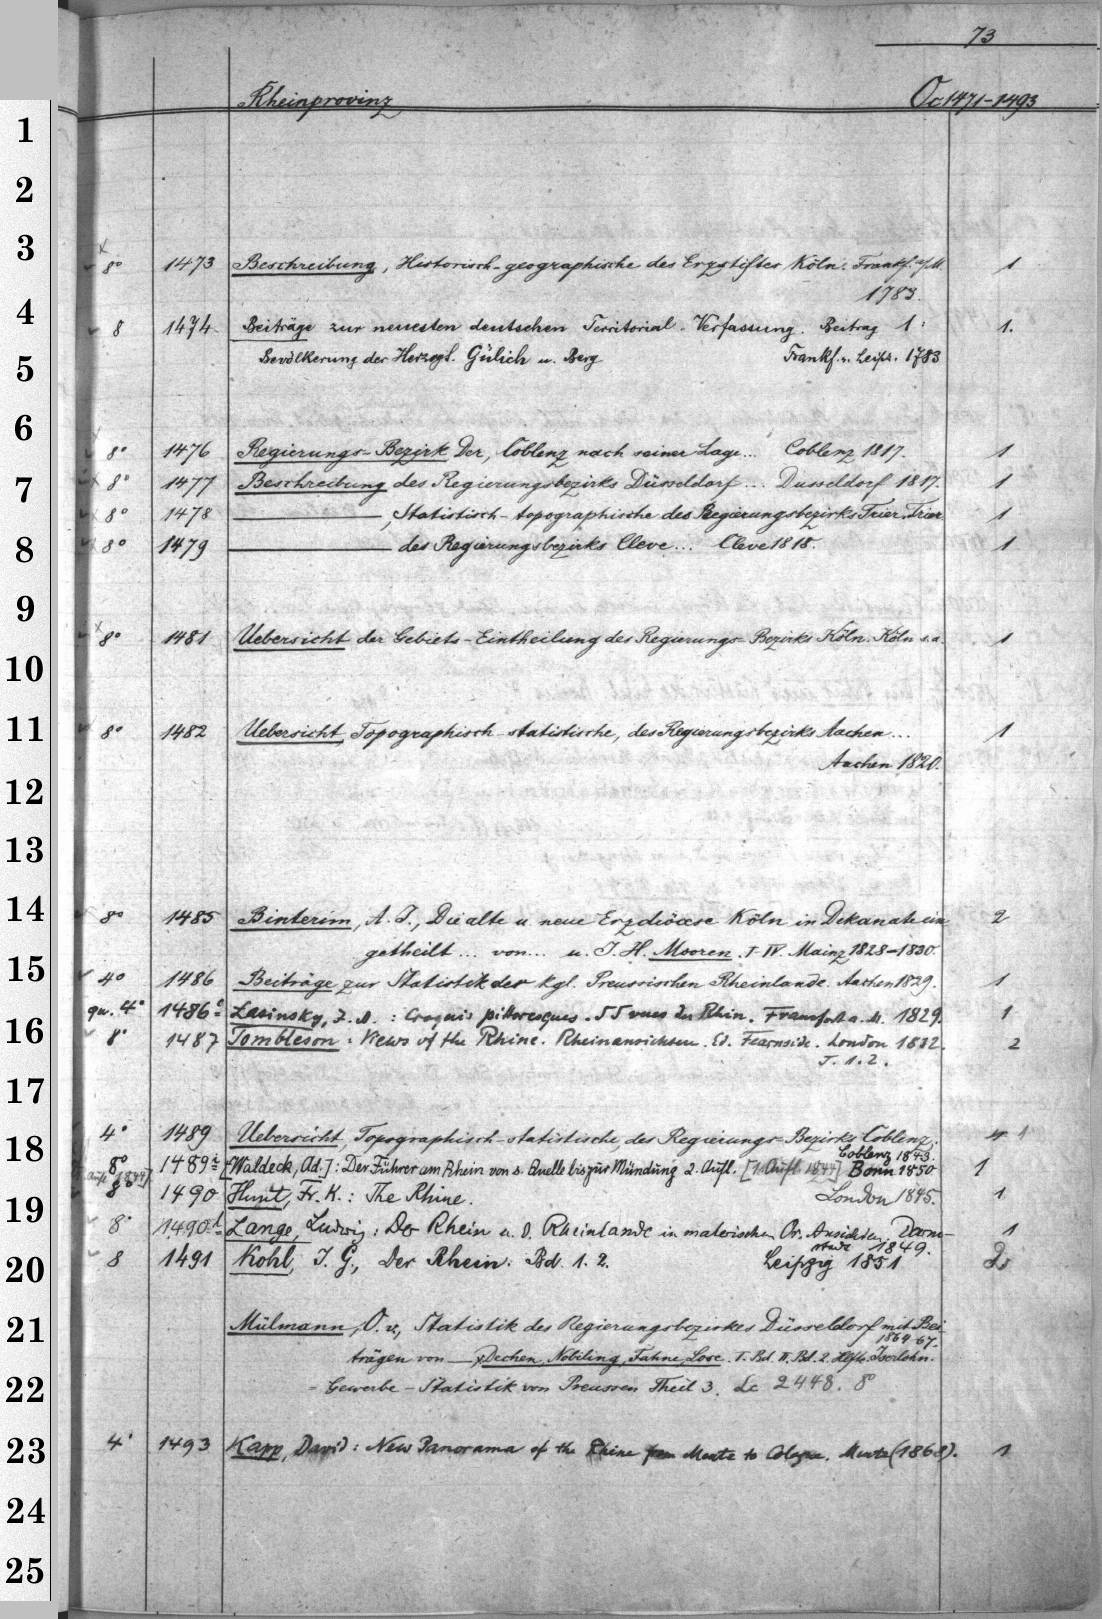 73
Rheinprovinz Oc 1471-1493
1
2
3
8° 1473 Beschreibung, Historisch-geographische des Erzstiftes Köln. Frankf. a/M. 1
1783.
4
8 1474 Beiträge zur neuesten deutschen Territorial-Verfassung. Beitrag 1: 1.
Bevölkerung der Herzogl. Gülich u. Berg Frankf. u. Leipz. 1783
5
6
8° 1476 Regierungs-Bezirk Der, Coblenz nach seiner Lage... Coblenz 1817. 1
7
8° 1477 Beschreibung des Regierungsbezirks Düsseldorf... Dusseldorf 1817. 1
8° 1478 ———, Statistisch-topographische des Regierungsbezirks Trier. Trier 1
8
8° 1479 ——— des Regierungsbezirks Cleve... Cleve 1818. 1
9
8° 1481 Uebersicht der Gebiets-Eintheilung des Regierungs-Bezirks Köln. Köln s.a. 1
10
11
8° 1482 Uebersicht, Topographisch-statistische, des Regierungsbezirks Aachen... 1
Aachen 1820.
12
13
14
8° 1485 Binterim, A. J., Die alte u neue Erzdiöcese Köln in Dekanate ein 2
getheilt... von... u. J. H. Mooren. I-IV. Mainz 1828-1830.
15
4° 1486 Beiträge zur Statistik der Kgl. Preussischen Rheinlande. Aachen 1829. 1
qu. 4° 1486 Lasinsky, J. A.: Croquis pittoresques. 55 vues du Rhin. Francfort a. M. 1829. 1
16
8° 1487 Tombleson: Views of the Rhine. Rheinansichten. Ed. Fearnside. London 1832. 2
T. 1. 2.
17
4° 1489 Uebersicht, Topographisch-statistische, des Regierungs-Bezirks Coblenz. 1
Coblenz 1843.
18
8° 1489 [Waldeck, Ad.]: Der Führer am Rhein von s. Quelle bis zur Mündung 2. Aufl. [1. Aufl. 1844] Bonn 1850 1
8° 1490 Hunt, Fr. K.: The Rhine. London 1845. 1
19
8° 1490d Lange, Ludwig: Der Rhein u. d. Rheinlande in malerischen Or. Ansichten. Darm- 1
stadt 1849.
20
8 1491 Kohl, J. G., Der Rhein. Bd. 1. 2. Leipzig 1851 2
21
Mülmann, O. v., Statistik des Regierungsbezirkes Düsseldorf mit Bei-
1864-67.
trägen von — v. Dechen, Nobiling, Fahne, Lose. I. Bd. II. Bd. 2 Hlfte Iserlohn.
22
= Gewerbe-Statistik von Preussen Theil 3. Lc 2448. 8°
23
4° 1493 Kapp, David: New Panorama of the Rhine from Mentz to Cologne. Mentz (1868). 1
24
25